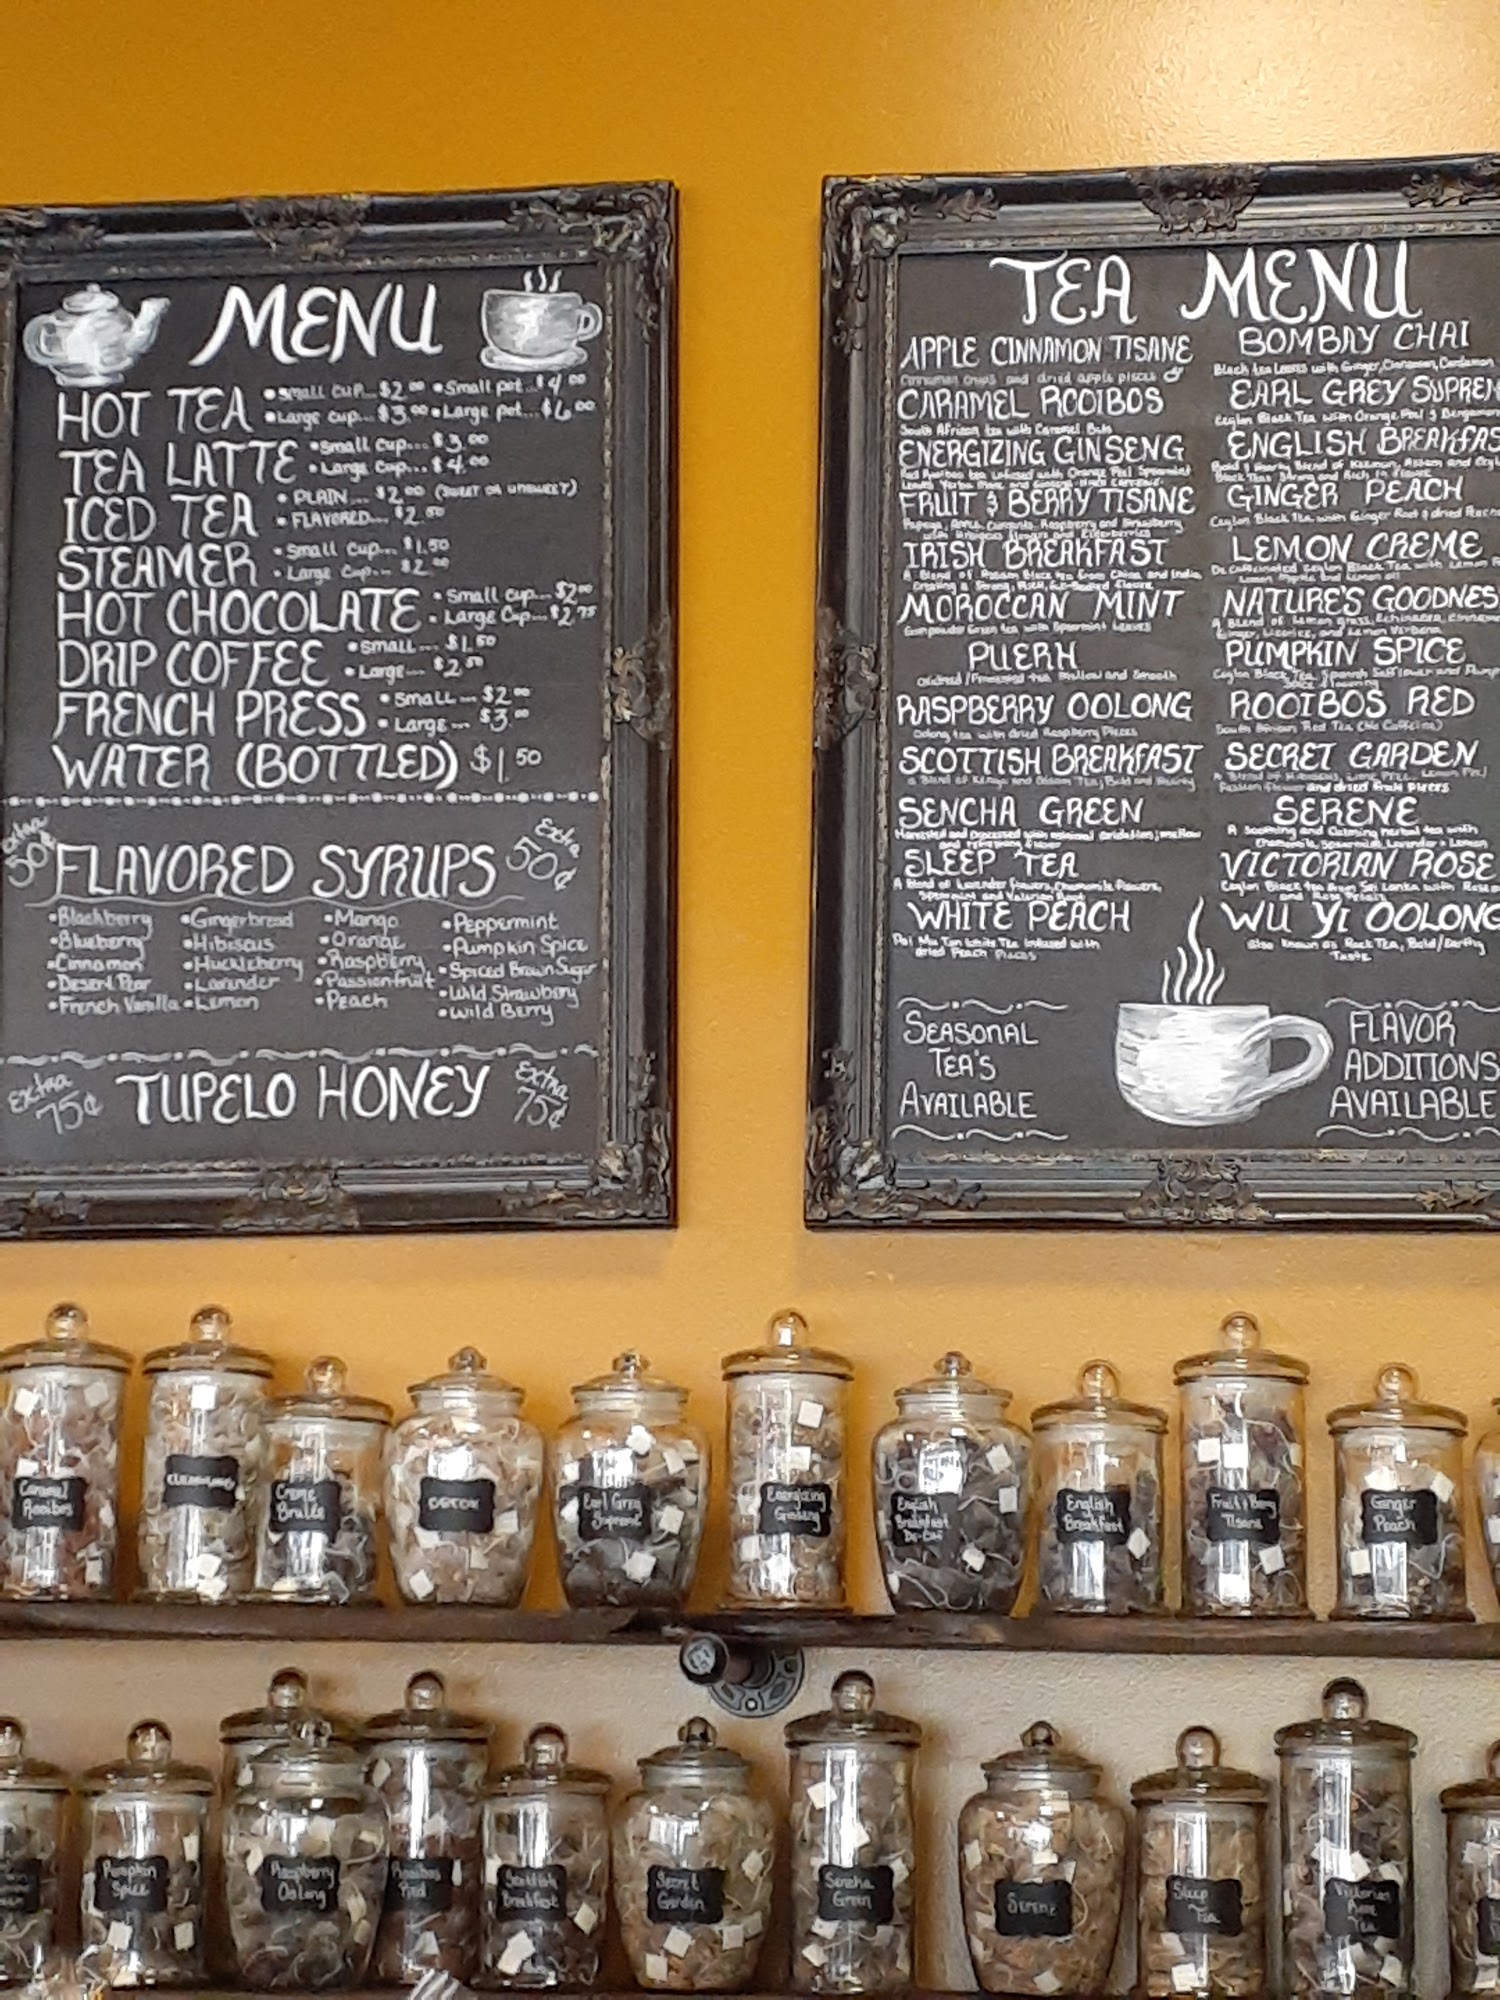 MENU
HOT TEA •Small cup...$2.00 •Small pot..$4.00
•Large cup...$3.00 •Large pot...$6.00
TEA LATTE •Small cup...$3.00
•Large cup...$4.00
ICED TEA •PLAIN...$2.00 (SWEET OR UNSWEET)
•FLAVORED...$2.50
STEAMER •Small cup...$1.50
•Large cup...$2.00
HOT CHOCOLATE •Small cup...$2.00
•Large cup...$2.75
DRIP COFFEE •Small...$1.50
•Large...$2.50
FRENCH PRESS •Small...$2.00
•Large...$3.00
WATER (BOTTLED) $1.50
Extra 50¢ FLAVORED SYRUPS Extra 50¢
•Blackberry •Gingerbread •Mango •Peppermint
•Blueberry •Hibiscus •Orange •Pumpkin Spice
•Cinnamon •Huckleberry •Raspberry •Spiced Brown Sugar
•Desert Pear •Lavender •Passionfruit •Wild Strawberry
•French Vanilla •Lemon •Peach •Wild Berry
Extra 75¢ TUPELO HONEY Extra 75¢
TEA MENU
APPLE CINNAMON TISANE
Cinnamon chips and dried apple pieces
CARAMEL ROOIBOS
South African tea with Caramel Bits
ENERGIZING GINSENG
Red Rooibos tea infused with Orange Peel Spearmint
FRUIT & BERRY TISANE
Papaya, Apple, Currants, Raspberry and Strawberry
with Hibiscus flowers and Elderberries
IRISH BREAKFAST
A Blend of Assam Black tea from China and India
MOROCCAN MINT
Gunpowder Green tea with Spearmint Leaves
PUERH
Oxidized/Fermented tea Mellow and Smooth
RASPBERRY OOLONG
Oolong tea with dried Raspberry Pieces
SCOTTISH BREAKFAST
SENCHA GREEN
Harvested and processed with minimal oxidation; mellow
and refreshing flavor
SLEEP TEA
A Blend of Lavender flowers, Chamomile flowers,
Spearmint and Valerian Root
WHITE PEACH
Pai Mu Tan White Tea infused with
dried Peach Pieces
BOMBAY CHAI
Black tea Leaves with Ginger, Cinnamon, Cardamom
EARL GREY SUPREM
Ceylon Black Tea with Orange Peel & Bergamot
ENGLISH BREAKFAS
Bold & Hearty Blend of Keemun, Assam and Ceylon
Black Teas Strong and Rich in flavor
GINGER PEACH
Ceylon Black Tea with Ginger Root & dried Peach
LEMON CREME
Decaffeinated Ceylon Black Tea with Lemon
Lemon Myrtle and Lemon oil
NATURE'S GOODNES
A Blend of Lemon grass, Echinacea, Cinnamon
Ginger, Licorice, and Lemon Verbena
PUMPKIN SPICE
Ceylon Black Tea, Spanish Safflower and Pump
ROOIBOS RED
South African Red Tea (No Caffeine)
SECRET GARDEN
A Blend of Hibiscus, Lime Peel, Lemon Peel
Passion flower and dried fruit pieces
SERENE
A Soothing and Calming herbal tea with
Chamomile, Spearmint, Lavender & Lemon
VICTORIAN ROSE
Ceylon Black tea from Sri Lanka with Rose
and Rose Petals
WU YI OOLONG
also known as Rock Tea, Bold/Earthy
Taste
SEASONAL
TEA'S
AVAILABLE
FLAVOR
ADDITIONS
AVAILABLE
Caramel
Rooibos
Creme
Brulee
DETOX
Earl Grey
Supreme
Energizing
Ginseng
English
Breakfast
De-Caf
English
Breakfast
Fruit & Berry
Tisane
Ginger
Peach
Pumpkin
Spice
Raspberry
Oolong
Rooibos
Red
Scottish
Breakfast
Secret
Garden
Sencha
Green
Serene
Sleep
Tea
Victorian
Rose
Tea